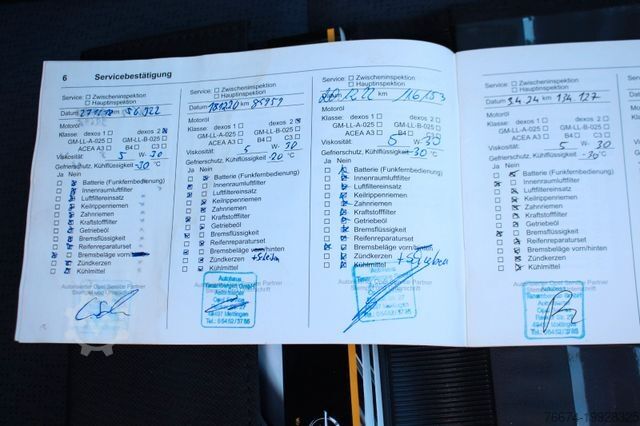 6 Servicebestätigung
Service: ☐ Zwischeninspektion
☐ Hauptinspektion
Datum km 56.922
Motoröl
Klasse: dexos 1 ☐ dexos 2 ☒
GM-LL-A-025 ☐ GM-LL-B-025 ☐
ACEA A3 ☐ B4 ☐ C3 ☐
Viskosität: 5 W- 30
Gefrierschutz, Kühlflüssigkeit -30 °C
Ja Nein
Batterie (Funkfernbedienung)
Innenraumluftfilter
Luftfiltereinsatz
Keilrippenriemen
Zahnriemen
Kraftstofffilter
Getriebeöl
Bremsflüssigkeit
Reifenreparaturset
Bremsbeläge vorn/
Zündkerzen
Kühlmittel
Autorisierter Opel Service Partner
Service: ☐ Zwischeninspektion
☐ Hauptinspektion
Datum km
Motoröl
Klasse: dexos 1 ☐ dexos 2 ☒
GM-LL-A-025 ☐ GM-LL-B-025 ☐
ACEA A3 ☐ B4 ☐ C3 ☐
Viskosität: 5 W- 30
Gefrierschutz, Kühlflüssigkeit -20 °C
Ja Nein
Batterie (Funkfernbedienung)
Innenraumluftfilter
Luftfiltereinsatz
Keilrippenriemen
Zahnriemen
Kraftstofffilter
Getriebeöl
Bremsflüssigkeit
Reifenreparaturset
Bremsbeläge /hinten
Zündkerzen
Kühlmittel
Autohaus
49497 Mettingen
Tel.: 05452/3785
Service: ☐ Zwischeninspektion
☐ Hauptinspektion
12.22 116153
Motoröl
Klasse: dexos 1 ☐ dexos 2 ☒
GM-LL-A-025 ☐ GM-LL-B-025 ☐
ACEA A3 ☐ B4 ☐ C3 ☐
Viskosität: 5 W- 30
Gefrierschutz, Kühlflüssigkeit -30 °C
Ja Nein
Batterie (Funkfernbedienung)
Innenraumluftfilter
Luftfiltereinsatz
Keilrippenriemen
Zahnriemen
Kraftstofffilter
Getriebeöl
Bremsflüssigkeit
Reifenreparaturset
Bremsbeläge vorn/
Zündkerzen + Scheiben
Kühlmittel
Service: ☐ Zwischeninspektion
☐ Hauptinspektion
Datum 3.4.24 km 134.127
Motoröl
Klasse: dexos 1 ☐ dexos 2
GM-LL-A-025 ☐ GM-LL-B-025 ☐
ACEA A3 ☐ B4 ☐ C3 ☐
Viskosität: 5 W- 30
Gefrierschutz, Kühlflüssigkeit -30 °C
Ja Nein
Batterie (Funkfernbedienung)
Innenraumluftfilter
Luftfiltereinsatz
Keilrippenriemen
Zahnriemen
Kraftstofffilter
Getriebeöl
Bremsflüssigkeit
Reifenreparaturset
Bremsbeläge vorn/hinten
Zündkerzen
Kühlmittel
Autohaus
49497 Mettingen
Tel.: 05452/3785